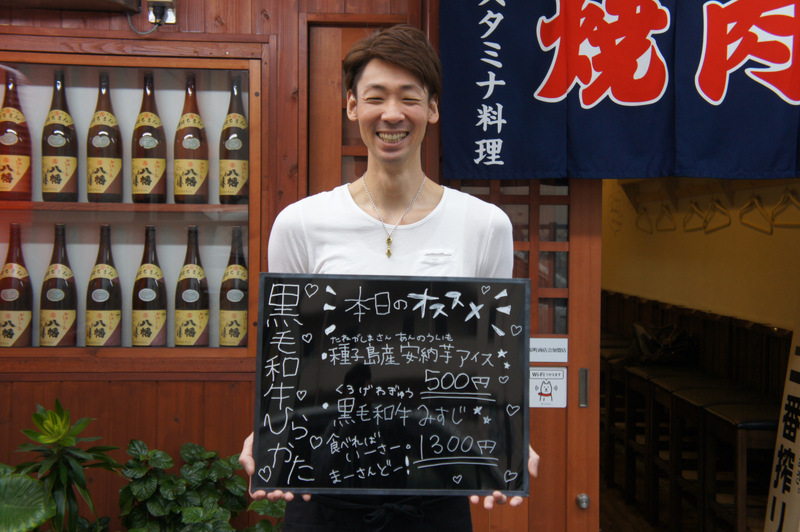 スタミナ料理
焼肉
八幡
八幡
八幡
八幡
八幡
八幡
黒毛和牛ひらかた
本日のオススメ
たねがしまさん あんのういも
種子島産 安納芋アイス
500円
くろげわぎゅう
黒毛和牛 みすじ
1300円
食べれば
いーさー。
まーさんどー!
Wi-Fi
一番搾り